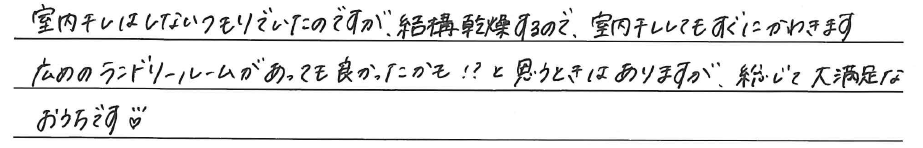 室内干しはしないつもりでいたのですが、結構乾燥するので、室内干ししてもすぐにかわきます
広めのランドリールームがあっても良かったかも!?と思うときはありますが、総じて大満足な
おうちです♡